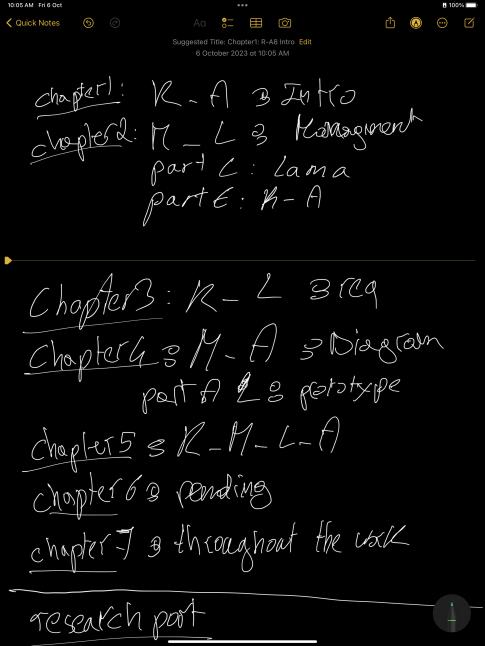 10:05 AM Fri 6 Oct
100%
Quick Notes
Aa
Suggested Title: Chapter1: R-A8 Intro Edit
6 October 2023 at 10:05 AM
chapter1: R - A : Intro
chapter2: M - L : Managment
part C: Lama
part E: R - A
Chapter3: R - L : req
Chapter4: M - A : Diagram
part A : prototype
chapter5: R - M - L - A
chapter6: pending
chapter7: throaghout the work
research part